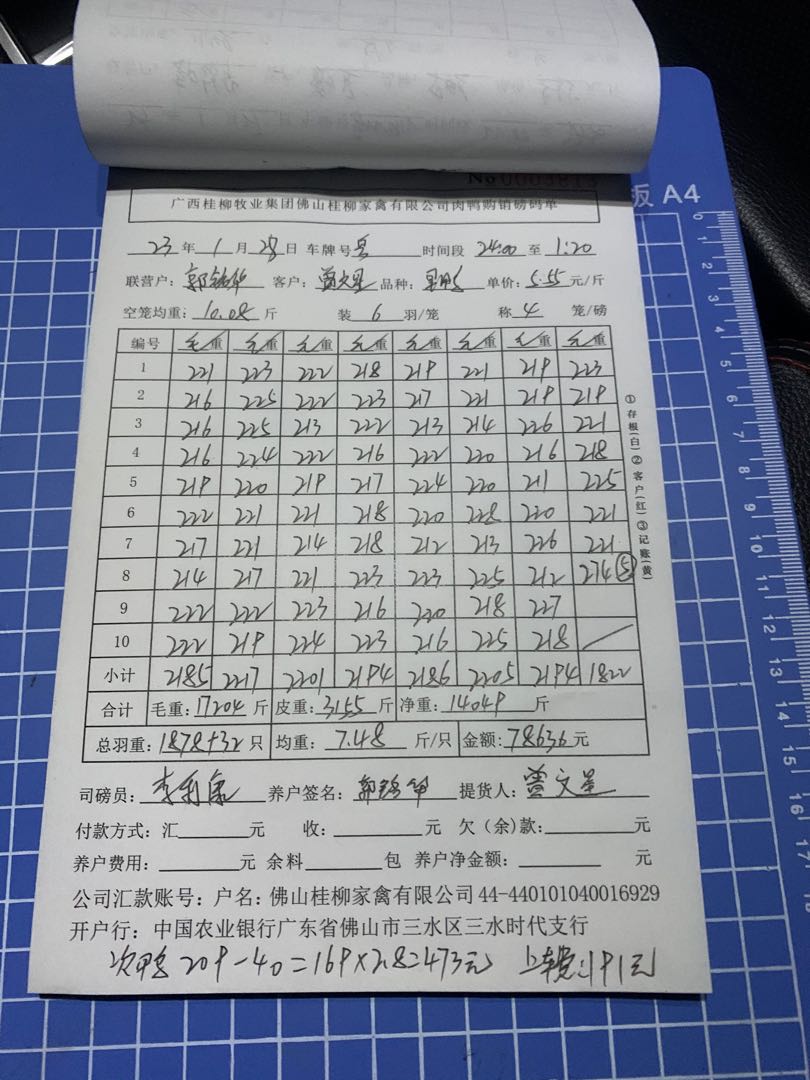 No 0003813
广西桂柳牧业集团佛山桂柳家禽有限公司肉鸭购销磅码单
23 年 1 月 28 日 车牌号 粤 时间段 24:00 至 1:20
联营户: 郭铭华 客户: 曾文星 品种: 单价: 5.55 元/斤
空笼均重: 10.08 斤 装 6 羽/笼 称 4 笼/磅
编号 毛重 毛重 毛重 毛重 毛重 毛重 毛重 毛重
1 221 223 222 218 219 221 219 223
2 216 225 222 223 217 221 219 219
3 216 225 213 222 213 214 226 221
4 216 224 222 216 222 220 216 218
5 219 220 219 217 224 220 211 225
6 222 221 221 218 220 228 220 221
7 217 221 214 218 212 213 226 221
8 214 217 221 223 223 225 212 274 ⑤
9 222 222 223 216 220 218 227
10 222 219 224 223 216 225 218 /
小计 2185 2217 2201 2194 2186 2205 2194 1822
合计 毛重: 17204 斤 皮重: 3155 斤 净重: 14049 斤
总羽重: 1878+32 只 均重: 7.48 斤/只 金额: 78636 元
①存根(白)②客户(红)③记账(黄)
司磅员: 李利康 养户签名: 郭铭华 提货人: 曾文星
付款方式: 汇 元 收: 元 欠(余)款: 元
养户费用: 元 余料 包 养户净金额: 元
公司汇款账号: 户名: 佛山桂柳家禽有限公司 44-440101040016929
开户行: 中国农业银行广东省佛山市三水区三水时代支行
次鸭 209-40=169×2.8=473元 上车费:191元
板 A4
0 1 2 3 4 5 6 7 8 9 10 11 12 13 14 15